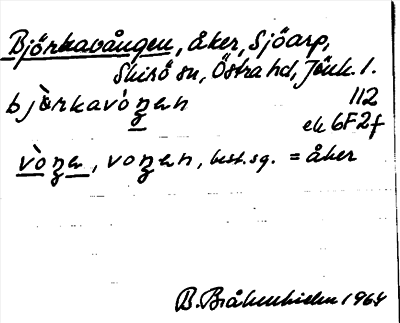 Björkavången, åker, Sjöarp,
Skirö sn, Östra hd, Jönk. l.
bjòrkavón̠gen 112
ek 6F2f
vòŋen, voŋen, best.sg. = åker
B. Bråkenhielm 1964